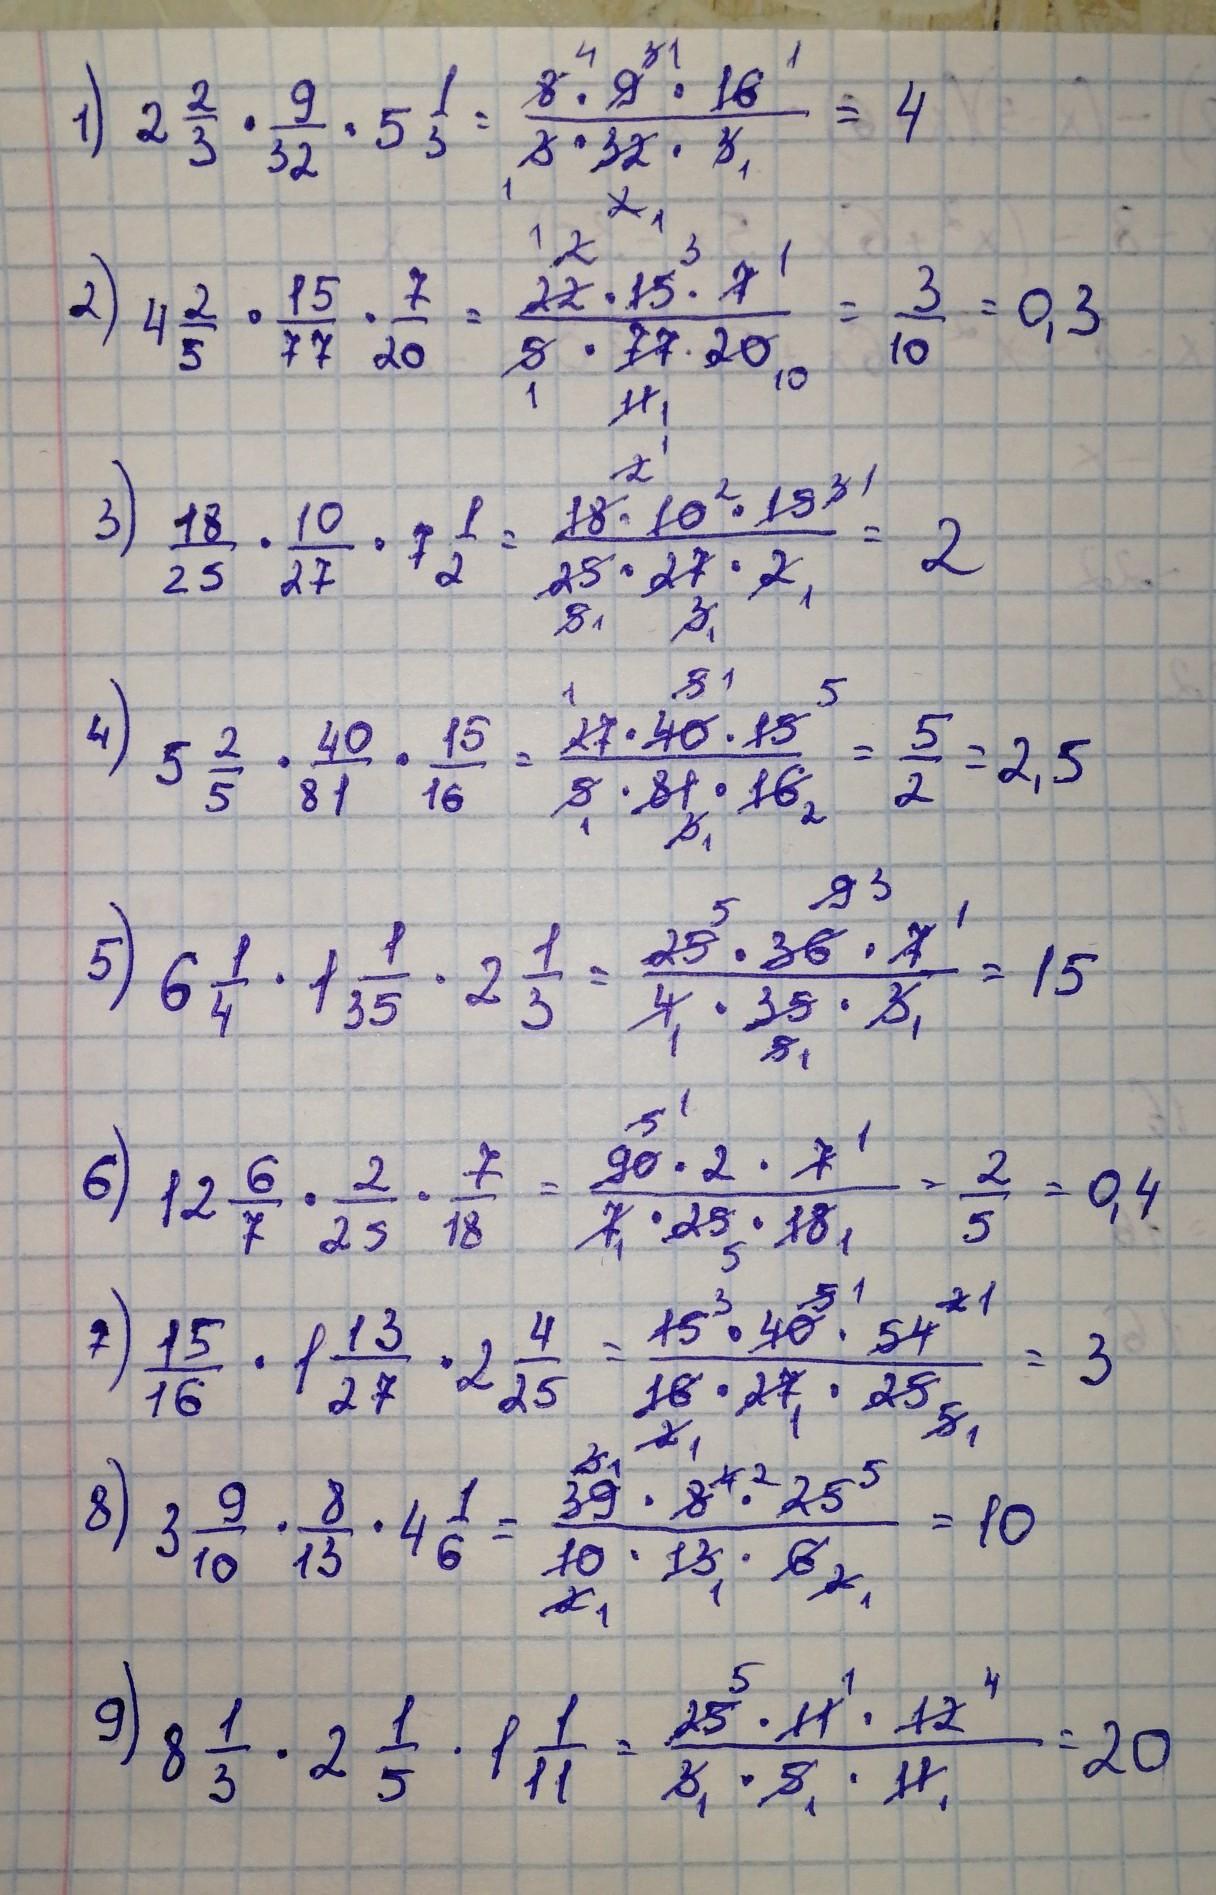 1) 2 2/3 · 9/32 · 5 1/3 = (8 · 9 · 16)/(3 · 32 · 3) = 4
2) 4 2/5 · 15/77 · 7/20 = (22 · 15 · 7)/(5 · 77 · 20) = 3/10 = 0,3
3) 18/25 · 10/27 · 7 1/2 = (18 · 10 · 15)/(25 · 27 · 2) = 2
4) 5 2/5 · 40/81 · 15/16 = (27 · 40 · 15)/(5 · 81 · 16) = 5/2 = 2,5
5) 6 1/4 · 1 1/35 · 2 1/3 = (25 · 36 · 7)/(4 · 35 · 3) = 15
6) 12 6/7 · 2/25 · 7/18 = (90 · 2 · 7)/(7 · 25 · 18) = 2/5 = 0,4
7) 15/16 · 1 13/27 · 2 4/25 = (15 · 40 · 54)/(16 · 27 · 25) = 3
8) 3 9/10 · 8/13 · 4 1/6 = (39 · 8 · 25)/(10 · 13 · 6) = 10
9) 8 1/3 · 2 1/5 · 1 1/11 = (25 · 11 · 12)/(3 · 5 · 11) = 20